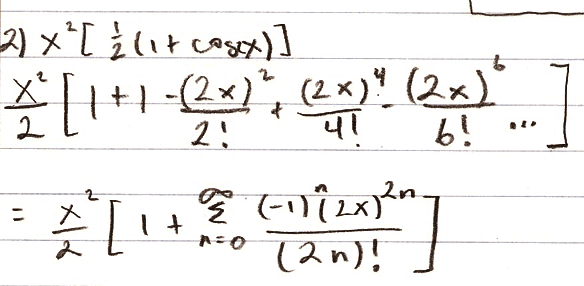 2) x²[ ½ (1 + cos2x)]
x²/2 [ 1 + 1 - (2x)²/2! + (2x)⁴/4! - (2x)⁶/6! ... ]
= x²/2 [ 1 + ∞Σn=0 (-1)ⁿ(2x)²ⁿ/(2n)! ]